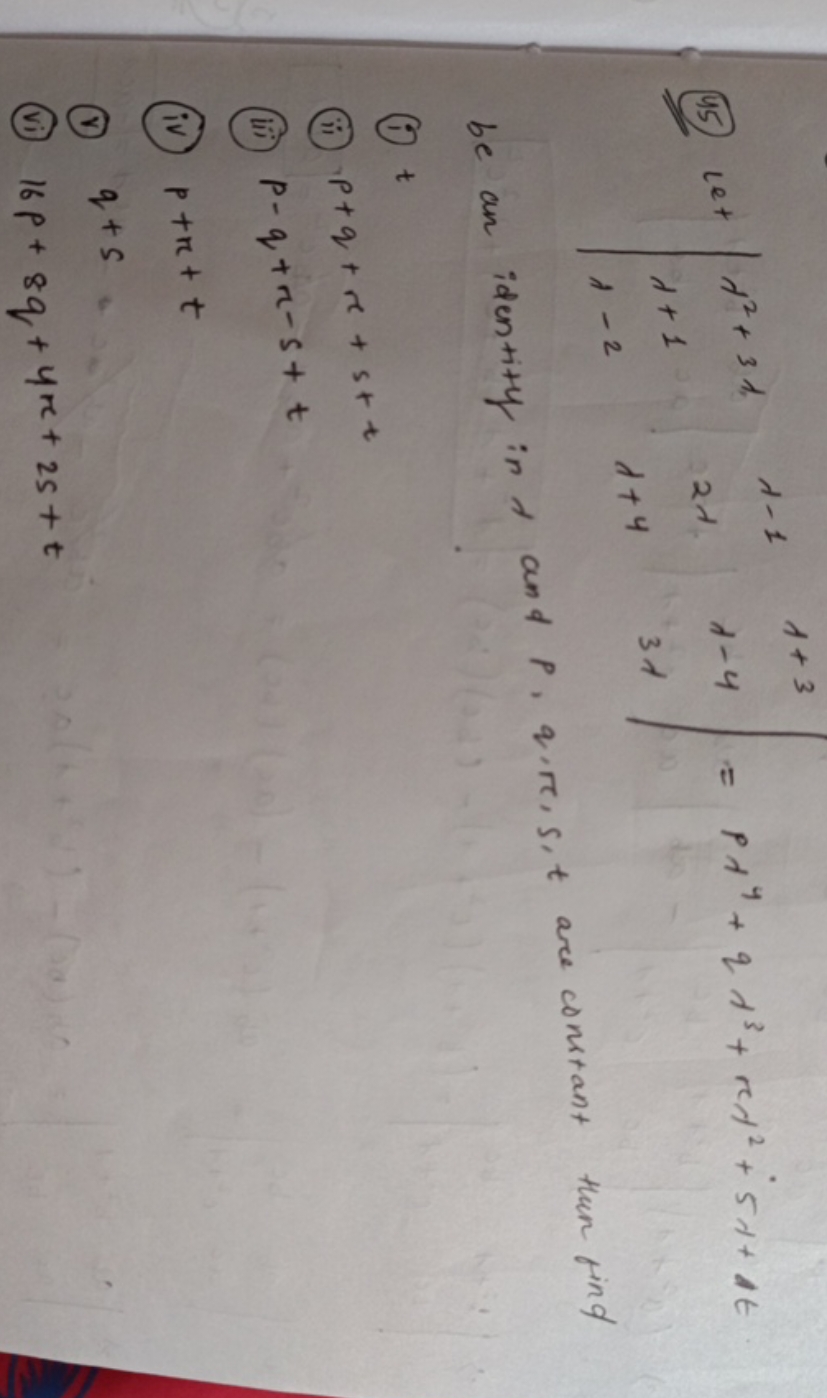 45 Let | λ²+3λ λ-1 λ+3 |
| λ+1 2λ λ-4 | = pλ⁴ + qλ³ + rλ² + sλ + λt
| λ-2 λ+4 3λ |
be an identity in λ and p, q, r, s, t are constant then find
(i) t
(ii) p+q+r+s+t
(iii) p-q+r-s+t
(iv) p+r+t
(v) q+s
(vi) 16p+8q+4r+2s+t